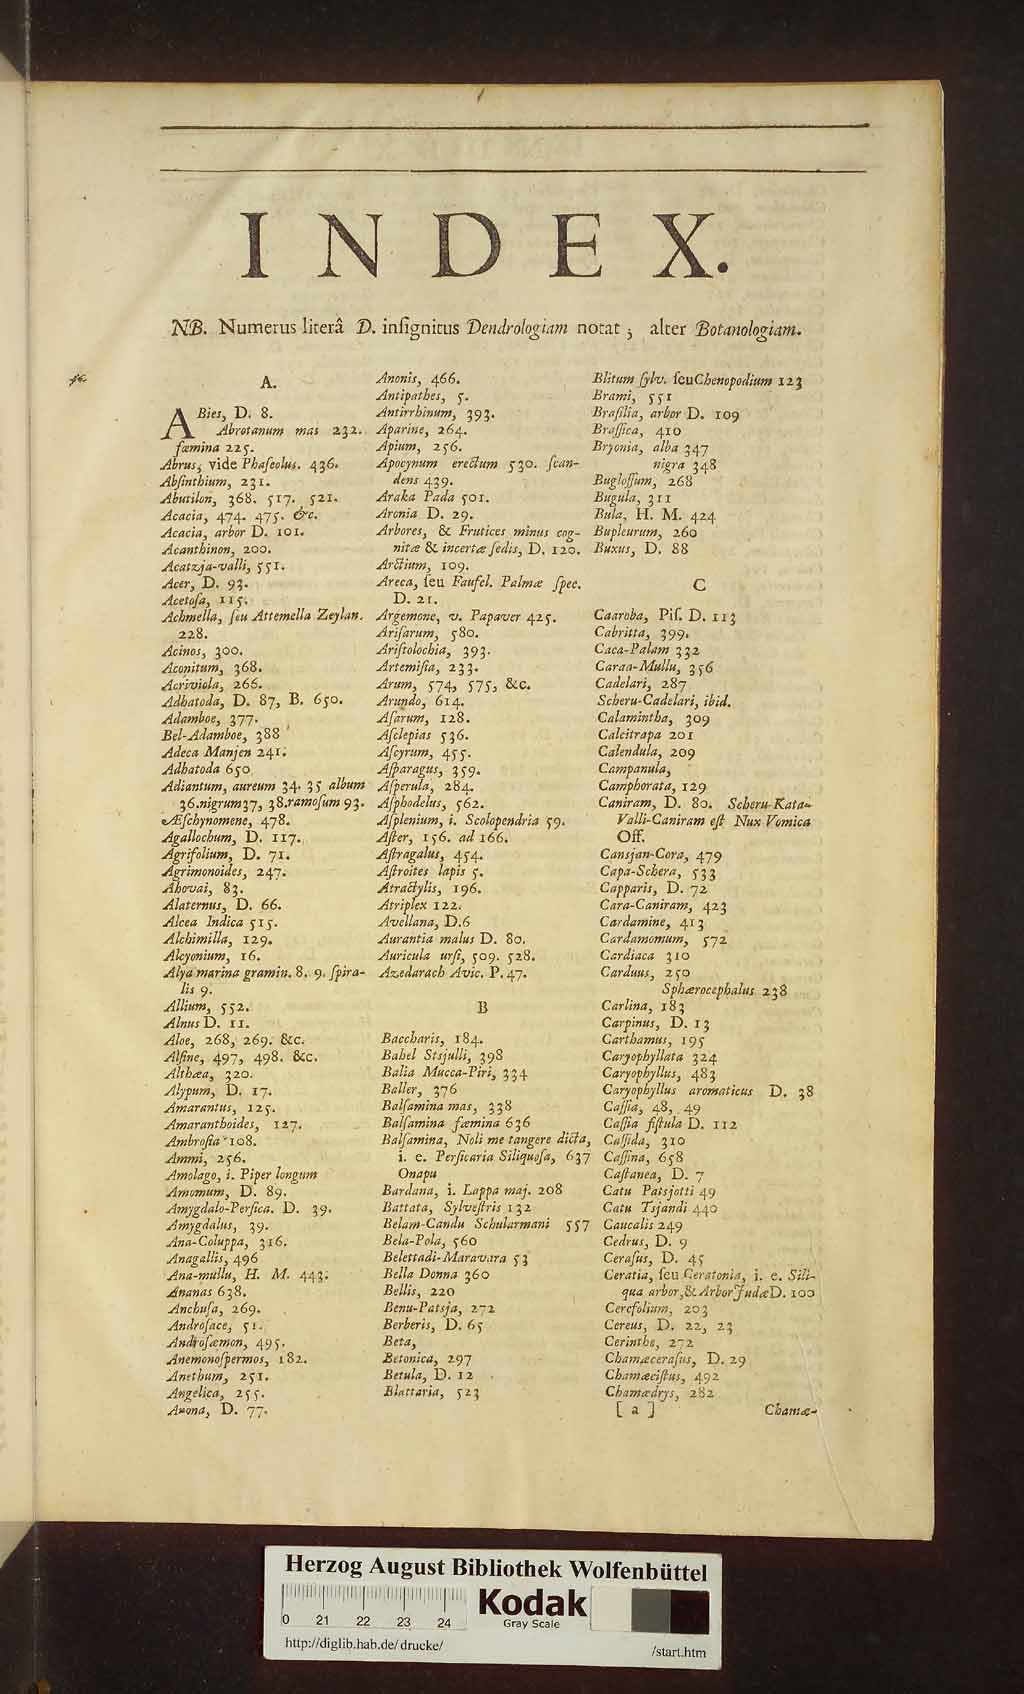 INDEX.
NB. Numerus literâ D. inſignitus Dendrologiam notat; alter Botanologiam.
A.
ABies, D. 8.
Abrotanum mas 232.
fœmina 225.
Abrus, vide Phaſeolus. 436.
Abſinthium, 231.
Abutilon, 368. 517. 521.
Acacia, 474. 475. &c.
Acacia, arbor D. 101.
Acanthinon, 200.
Acatzja-valli, 551.
Acer, D. 93.
Acetoſa, 115.
Achmella, ſeu Attemella Zeylan.
228.
Acinos, 300.
Aconitum, 368.
Acriviola, 266.
Adhatoda, D. 87, B. 650.
Adamboe, 377.
Bel-Adamboe, 388
Adeca Manjen 241.
Adhatoda 650
Adiantum, aureum 34. 35 album
36.nigrum37, 38.ramoſum 93.
Æſchynomene, 478.
Agallochum, D. 117.
Agrifolium, D. 71.
Agrimonoides, 247.
Ahovai, 83.
Alaternus, D. 66.
Alcea Indica 515.
Alchimilla, 129.
Alcyonium, 16.
Alga marina gramin. 8. 9. ſpira-
lis 9.
Allium, 552.
Alnus D. 11.
Aloe, 268, 269. &c.
Alſine, 497, 498. &c.
Althæa, 320.
Alypum, D. 17.
Amarantus, 125.
Amaranthoides, 127.
Ambroſia 108.
Ammi, 256.
Amolago, i. Piper longum
Amomum, D. 89.
Amygdalo-Perſica. D. 39.
Amygdalus, 39.
Ana-Coluppa, 316.
Anagallis, 496
Ana-mullu, H. M. 443.
Ananas 638.
Anchuſa, 269.
Androſace, 51.
Androſæmon, 495.
Anemonoſpermos, 182.
Anethum, 251.
Angelica, 255.
Anona, D. 77.
Anonis, 466.
Antipathes, 5.
Antirrhinum, 393.
Aparine, 264.
Apium, 256.
Apocynum erectum 530. ſcan-
dens 439.
Araka Pada 501.
Aronia D. 29.
Arbores, & Frutices minus cog-
nitæ & incertæ ſedis, D. 120.
Arctium, 109.
Areca, ſeu Faufel. Palmæ ſpec.
D. 21.
Argemone, v. Papaver 425.
Ariſarum, 580.
Ariſtolochia, 393.
Artemiſia, 233.
Arum, 574, 575, &c.
Arundo, 614.
Aſarum, 128.
Aſclepias 536.
Aſcyrum, 455.
Aſparagus, 359.
Aſperula, 284.
Aſphodelus, 562.
Aſplenium, i. Scolopendria 59.
Aſter, 156. ad 166.
Aſtragalus, 454.
Aſtroites lapis 5.
Atractylis, 196.
Atriplex 122.
Avellana, D.6
Aurantia malus D. 80.
Auricula urſi, 509. 528.
Azedarach Avic. P. 47.
B
Baccharis, 184.
Bahel Stsjulli, 398
Balia Mucca-Piri, 334
Baller, 376
Balſamina mas, 338
Balſamina fœmina 636
Balſamina, Noli me tangere dicta,
i. e. Perſicaria Siliquoſa, 637
Onapu
Bardana, i. Lappa maj. 208
Battata, Sylveſtris 132
Belam-Candu Schularmani 557
Bela-Pola, 560
Belettadi-Maravara 53
Bella Donna 360
Bellis, 220
Benu-Patsja, 272
Berberis, D. 65
Beta,
Betonica, 297
Betula, D. 12
Blattaria, 523
Blitum ſylv. ſeuChenopodium 123
Brami, 551
Braſilia, arbor D. 109
Braſſica, 410
Bryonia, alba 347
nigra 348
Bugloſſum, 268
Bugula, 311
Bula, H. M. 424
Bupleurum, 260
Buxus, D. 88
C
Caaroba, Piſ. D. 113
Cabritta, 399.
Caca-Palam 332
Caraa-Mullu, 356
Cadelari, 287
Scheru-Cadelari, ibid.
Calamintha, 309
Calcitrapa 201
Calendula, 209
Campanula,
Camphorata, 129
Caniram, D. 80. Scheru-Kata-
Valli-Caniram eſt Nux Vomica
Off.
Cansjan-Cora, 479
Capa-Schera, 533
Capparis, D. 72
Cara-Caniram, 423
Cardamine, 413
Cardamomum, 572
Cardiaca 310
Carduus, 250
Sphærocephalus 238
Carlina, 183
Carpinus, D. 13
Carthamus, 195
Caryophyllata 324
Caryophyllus, 483
Caryophyllus aromaticus D. 38
Caſſia, 48, 49
Caſſia fiſtula D. 112
Caſſida, 310
Caſſina, 658
Caſtanea, D. 7
Catu Paisjotti 49
Catu Tsjandi 440
Caucalis 249
Cedrus, D. 9
Ceraſus, D. 45
Ceratia, ſeu Ceratonia, i. e. Sili-
qua arbor,& Arbor JudæD. 100
Cerefolium, 203
Cereus, D. 22, 23
Cerinthe, 272
Chamæceraſus, D. 29
Chamæciſtus, 492
Chamædrys, 282
[ a ] Chamæ-
Herzog August Bibliothek Wolfenbüttel
0 21 22 23 24
Kodak
Gray Scale
http://diglib.hab.de/drucke/ /start.htm